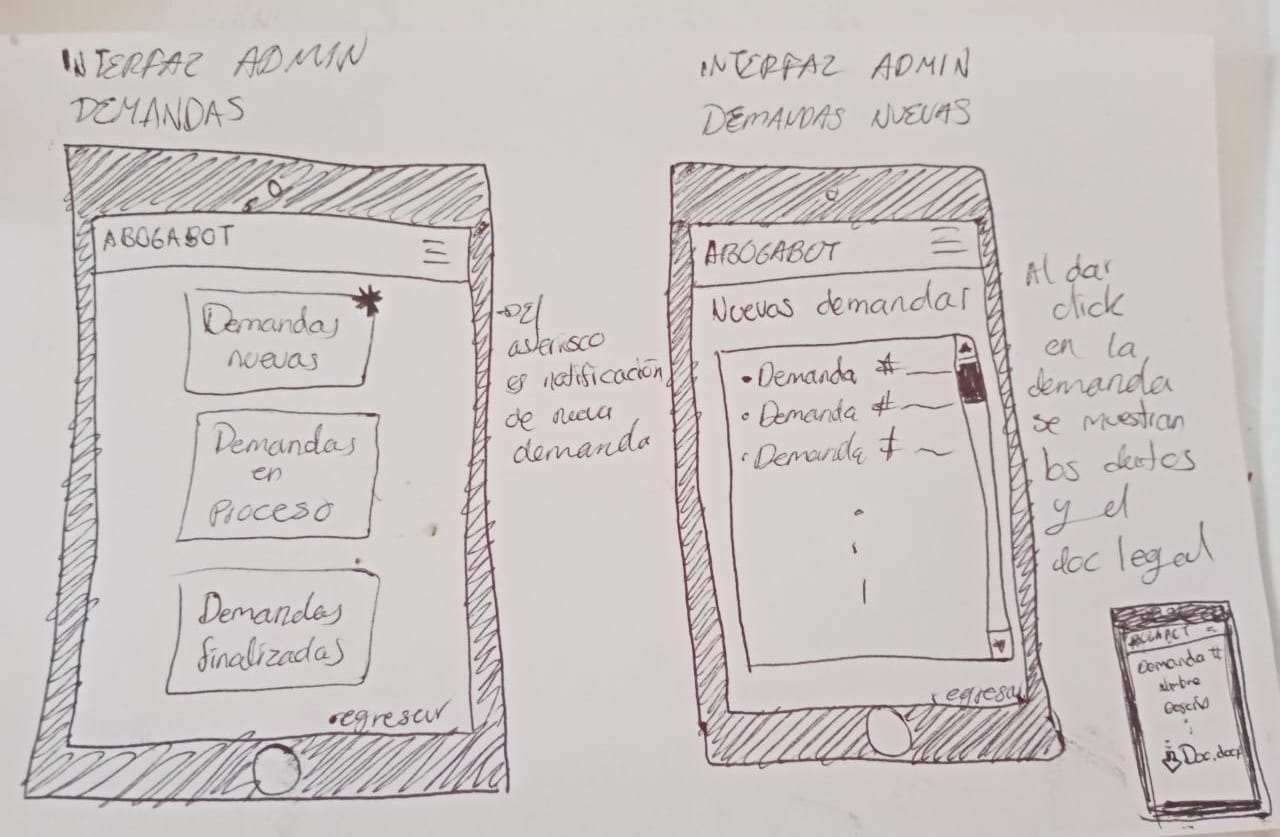 INTERFAZ ADMIN
DEMANDAS
ABOGABOT
Demandas
nuevas
Demandas
en
Proceso
Demandas
finalizadas
regresar
El
asterisco
es notificación
de nueva
demanda
INTERFAZ ADMIN
DEMANDAS NUEVAS
ABOGABOT
Nuevas demandas
• Demanda #
• Demanda #
• Demanda #
regresar
Al dar
click
en la
demanda
se muestran
los datos
y el
doc legal
ABOGABOT
Demanda #
nombre
Doc.docx